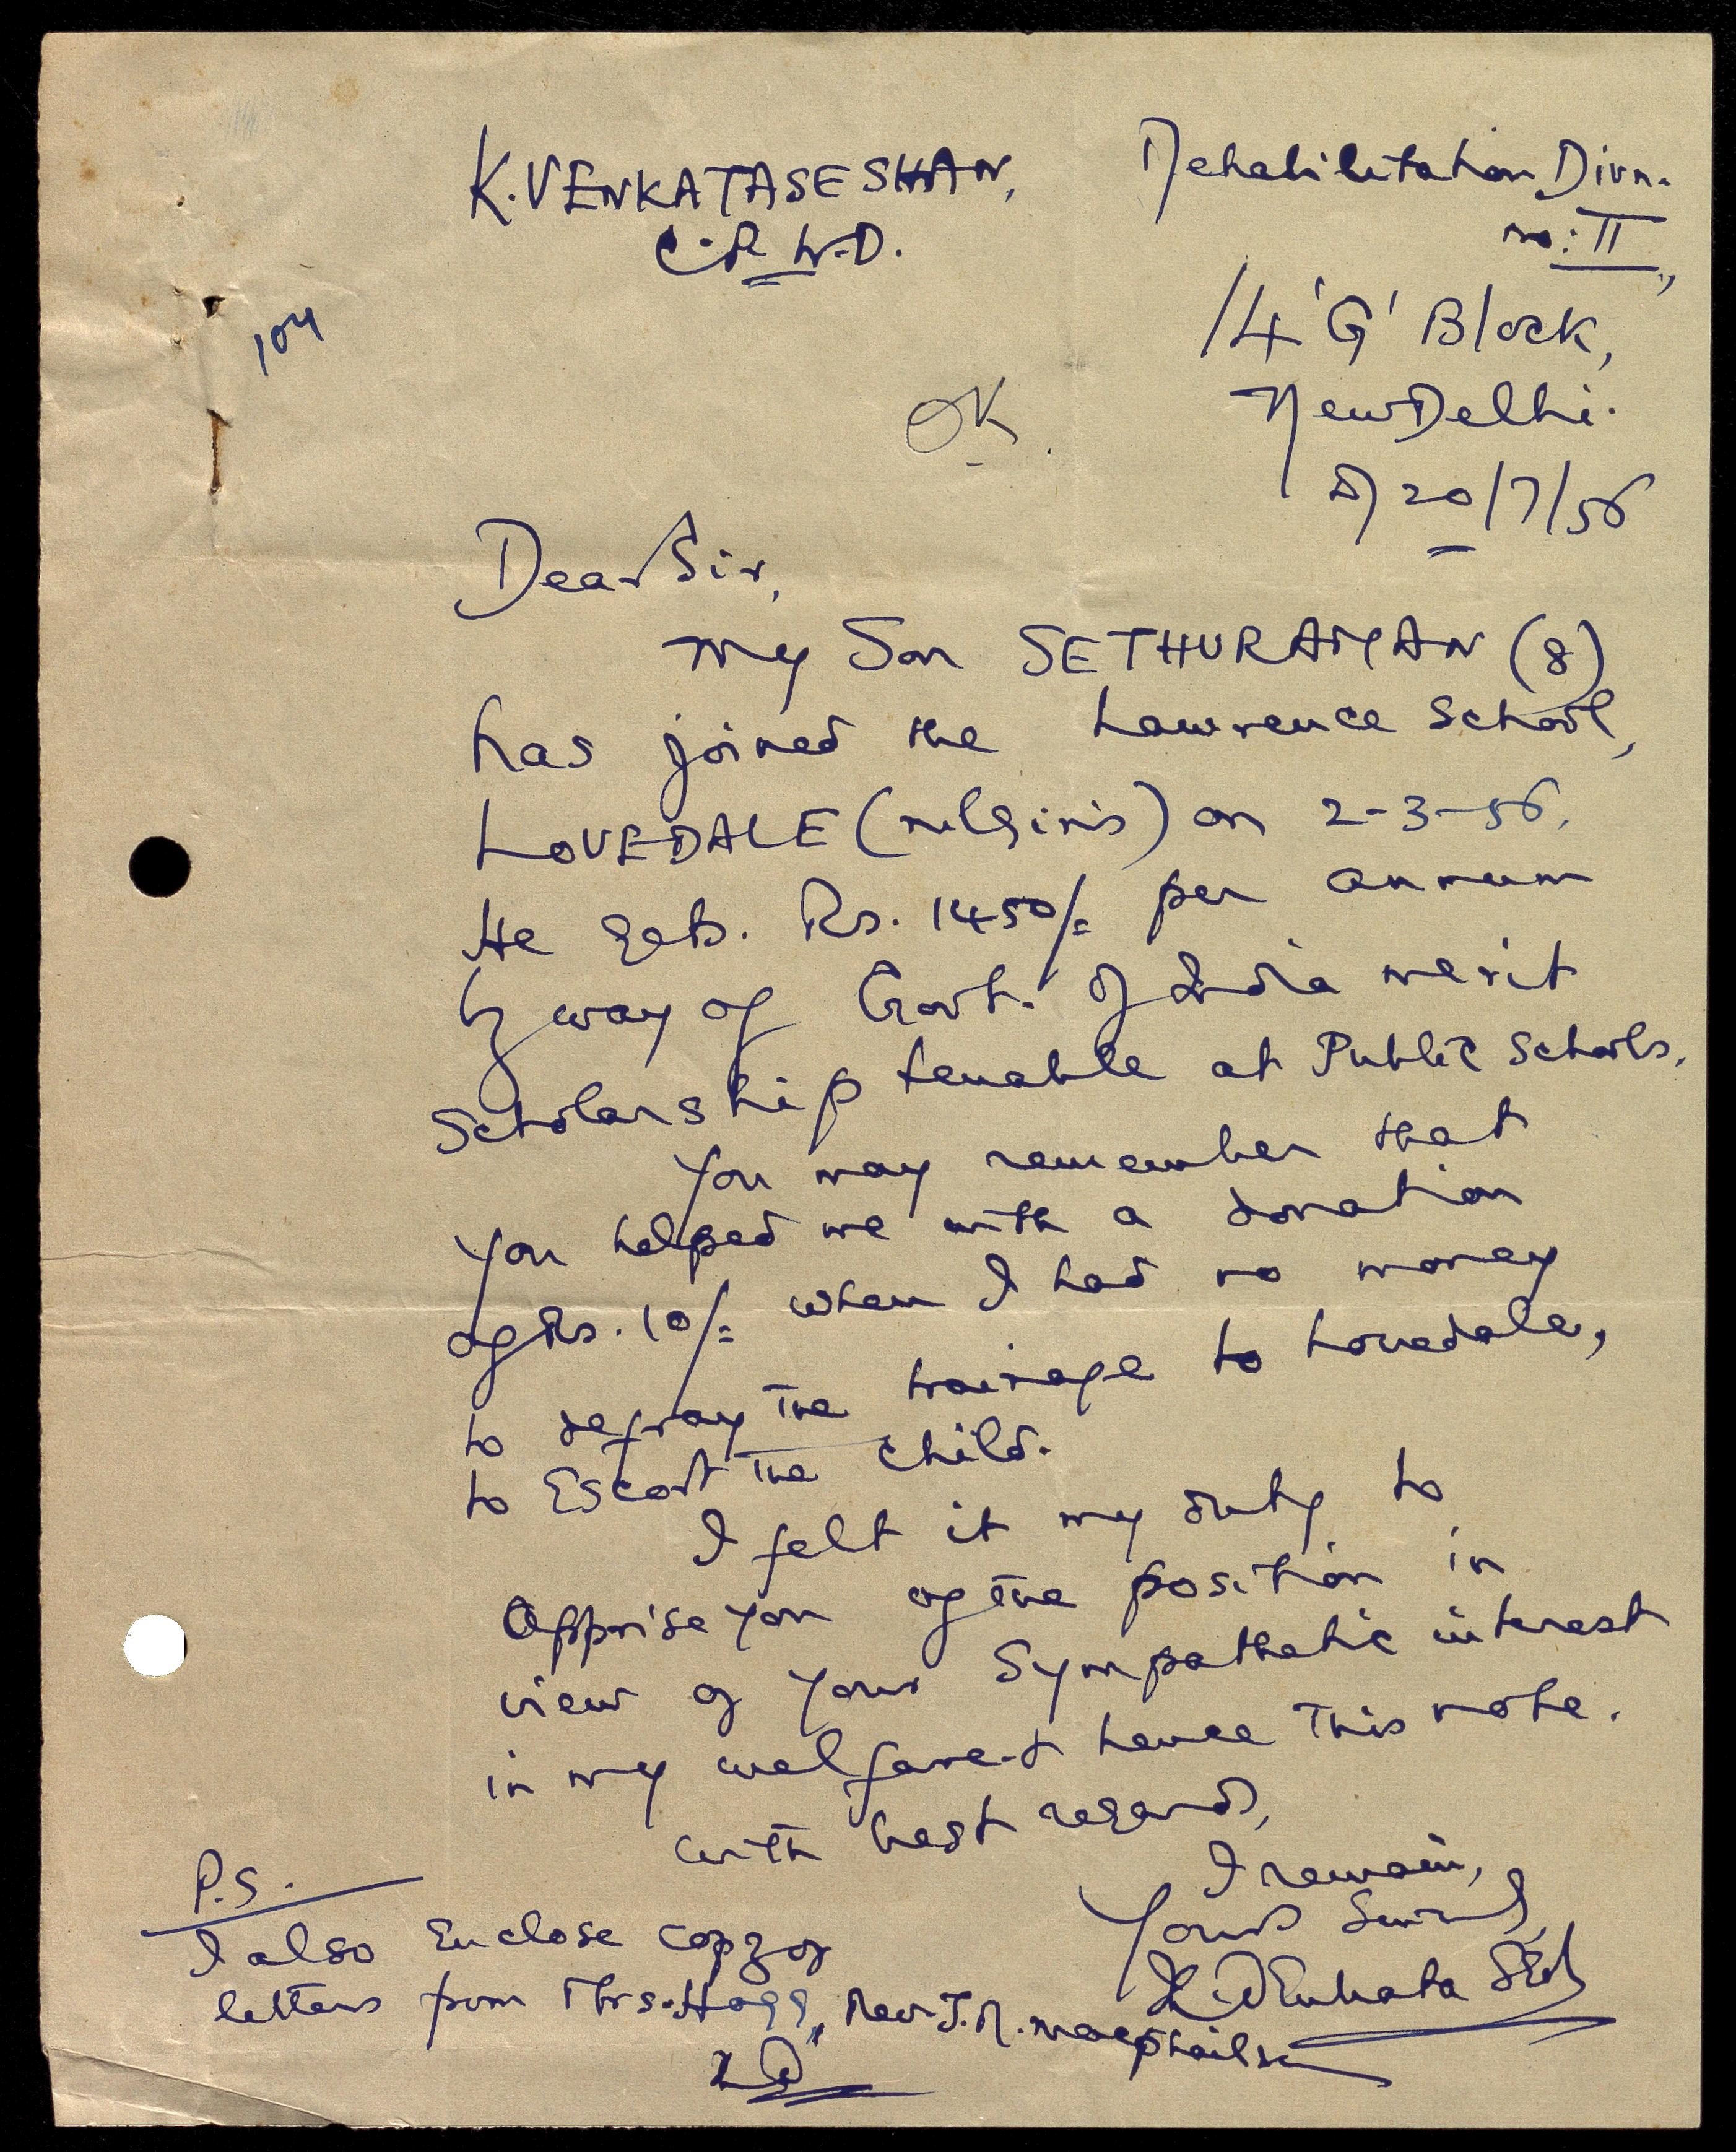 K. VENKATASESHAN,
C.P.W.D.
Rehabilitation Divn.
no: II,
14 'G' Block,
New Delhi.
D/ 20/7/56
104
OK.
Dear Sir,
My Son SETHURAMAN (8)
has joined the Lawrence School,
LOVEDALE (nilgiris) on 2-3-56.
He gets. Rs. 1450/= per annum
by way of Govt. of India merit
Scholarship tenable at Public Schools.
You may remember that
you helped me with a donation
of Rs. 10/= when I had no money
to defray the trainage to Lovedale,
to Escort the child.
I felt it my duty to
Apprise you of the position in
view of your Sympathetic interest
in my welfare & hence This note.
with best regards,
I remain,
Yours Sincerely,
K. Venkata Sesh
P.S.
I also Enclose copy of
letters from Mrs. Hogg, Rev. J.R. macphail
KV